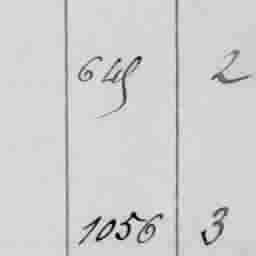 649 2
1056 3